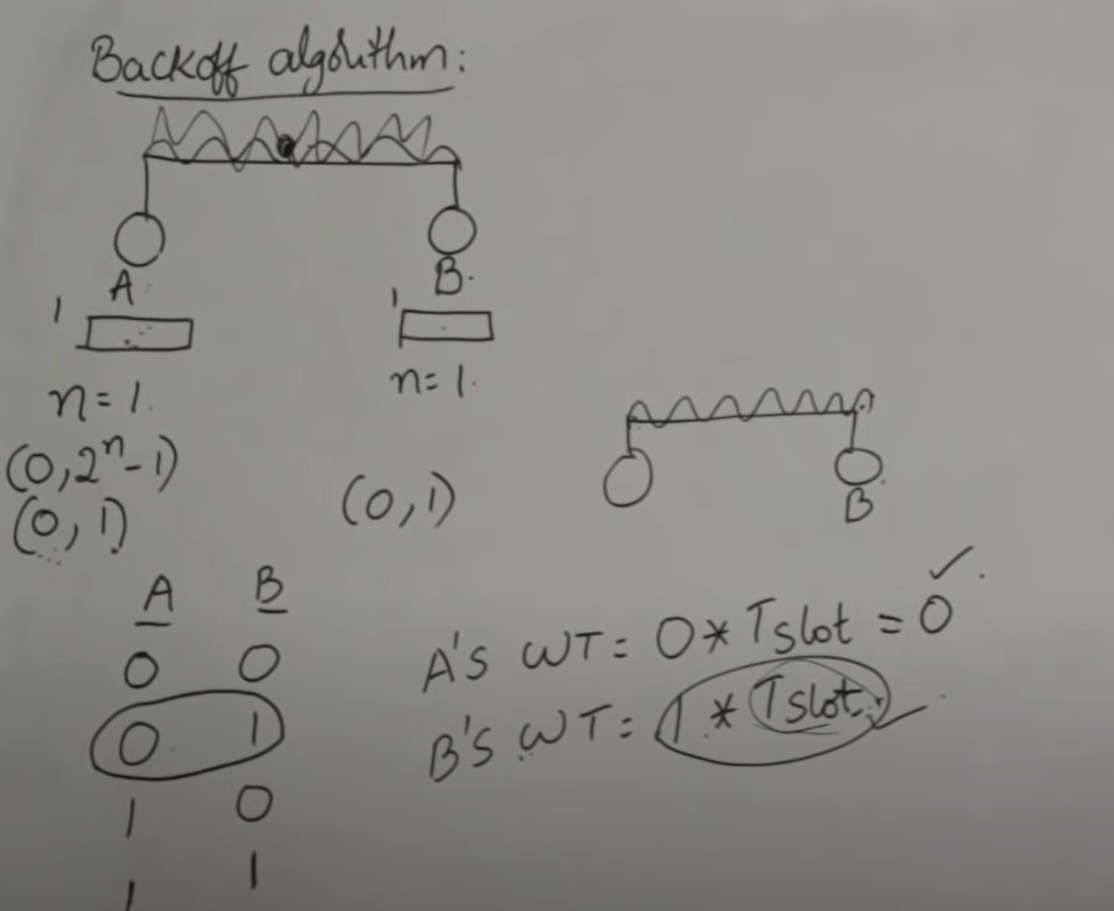 Backoff algorithm:
A B.
1 1
n=1. n=1.
(0,2ⁿ-1)
(0,1) (0,1)
B
A B
0 0
0 1
1 0
1 1
A's WT= 0*Tslot = 0 ✓.
B's WT= 1*Tslot. ✓